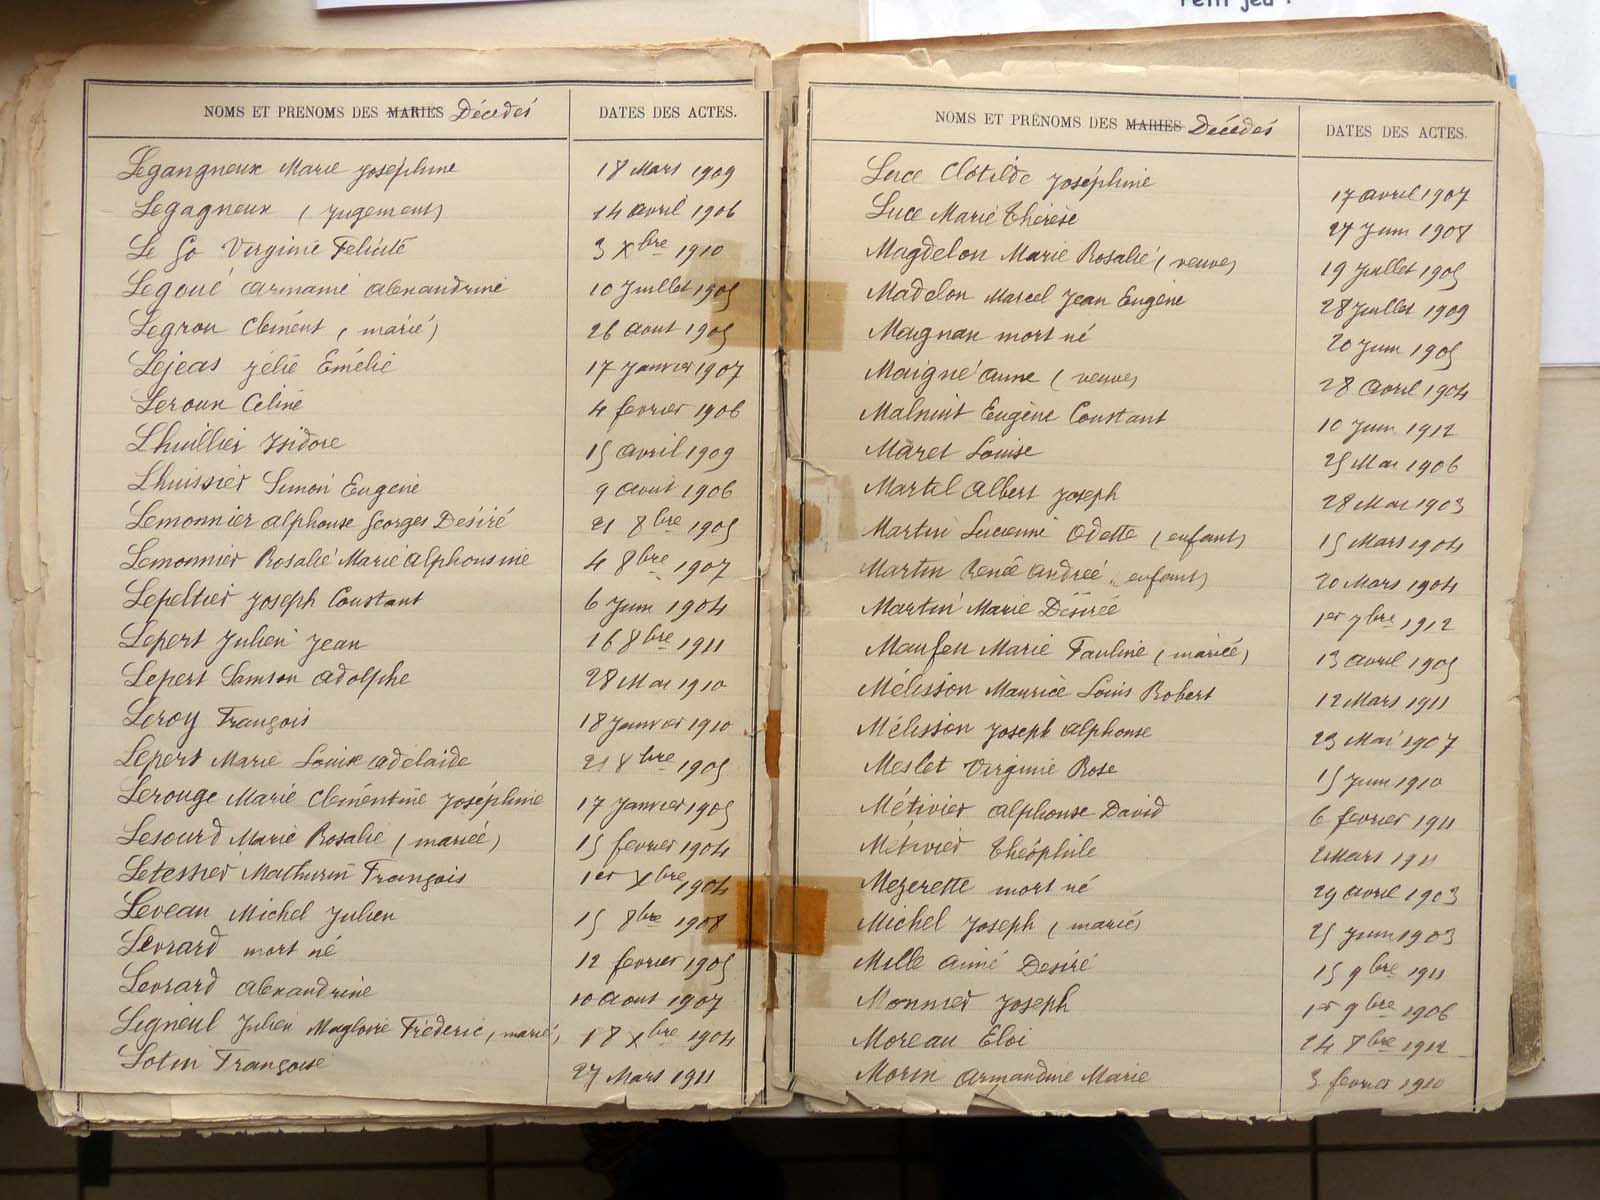 Petit jeu !
NOMS ET PRENOMS DES MARIES Décédés DATES DES ACTES.
Legangneux Marie Joséphine 18 Mars 1909
Legagneux (Jugement) 14 avril 1906
Le Go Virginie Félicité 3 Xbre 1910
Legoué Armanie Alexandrine 10 Juillet 1905
Legrou Clément (marié) 26 aout 1905
Lejeas Zélie Emélie 17 Janvier 1907
Leroux Céline 4 fevrier 1906
Lhuillier Isidore 15 avril 1909
Lhuissier Simon Eugène 9 aout 1906
Lemonnier Alphonse Georges Désiré 21 8bre 1905
Lemonnier Rosalie Marie Alphonsine 4 8bre 1907
Lepeltier Joseph Constant 6 Juin 1904
Lepert Julien Jean 16 8bre 1911
Lepert Samson Adolphe 28 Mai 1910
Leroy François 18 Janvier 1910
Lepert Marie Louise Adelaide 21 8bre 1905
Lerouge Marie Clémentine Joséphine 17 Janvier 1905
Lesourd Marie Rosalie (mariée) 15 fevrier 1904
Letessier Mathurin François 1er Xbre 1904
Leveau Michel Julien 15 8bre 1908
Levrard mort né 12 fevrier 1905
Levrard Alexandrine 10 aout 1907
Ligneul Julien Magloire Fréderic (marié) 18 Xbre 1904
Lotin Françoise 27 Mars 1911
NOMS ET PRÉNOMS DES MARIES Décédés DATES DES ACTES.
Luce Clotilde Joséphine 17 avril 1907
Luce Marie Thérèse 27 Juin 1908
Magdelon Marie Rosalie (veuve) 19 Juillet 1905
Madelon Marcel Jean Eugène 28 Juillet 1909
Maignan mort né 20 Juin 1905
Maigné Anne (veuve) 28 avril 1904
Malnuit Eugène Constant 10 Juin 1912
Maret Louise 25 Mai 1906
Martel Albert Joseph 28 Mai 1903
Martin Lucienne Odette (enfant) 15 Mars 1904
Martin Renée Andrée (enfant) 20 Mars 1904
Martin Marie Désirée 1er 7bre 1912
Maufeu Marie Pauline (mariée) 13 avril 1905
Mélisson Maurice Louis Robert 12 Mars 1911
Mélisson Joseph Alphonse 23 Mai 1907
Meslet Virginie Rose 15 Juin 1910
Métivier Alphonse David 6 fevrier 1911
Métivier Théophile 2 Mars 1911
Mezerette mort né 29 avril 1903
Michel Joseph (marié) 25 Juin 1903
Mille Aimé Desiré 15 9bre 1911
Monnier Joseph 1er 9bre 1906
Moreau Eloi 24 8bre 1912
Morin Armandine Marie 3 fevrier 1910